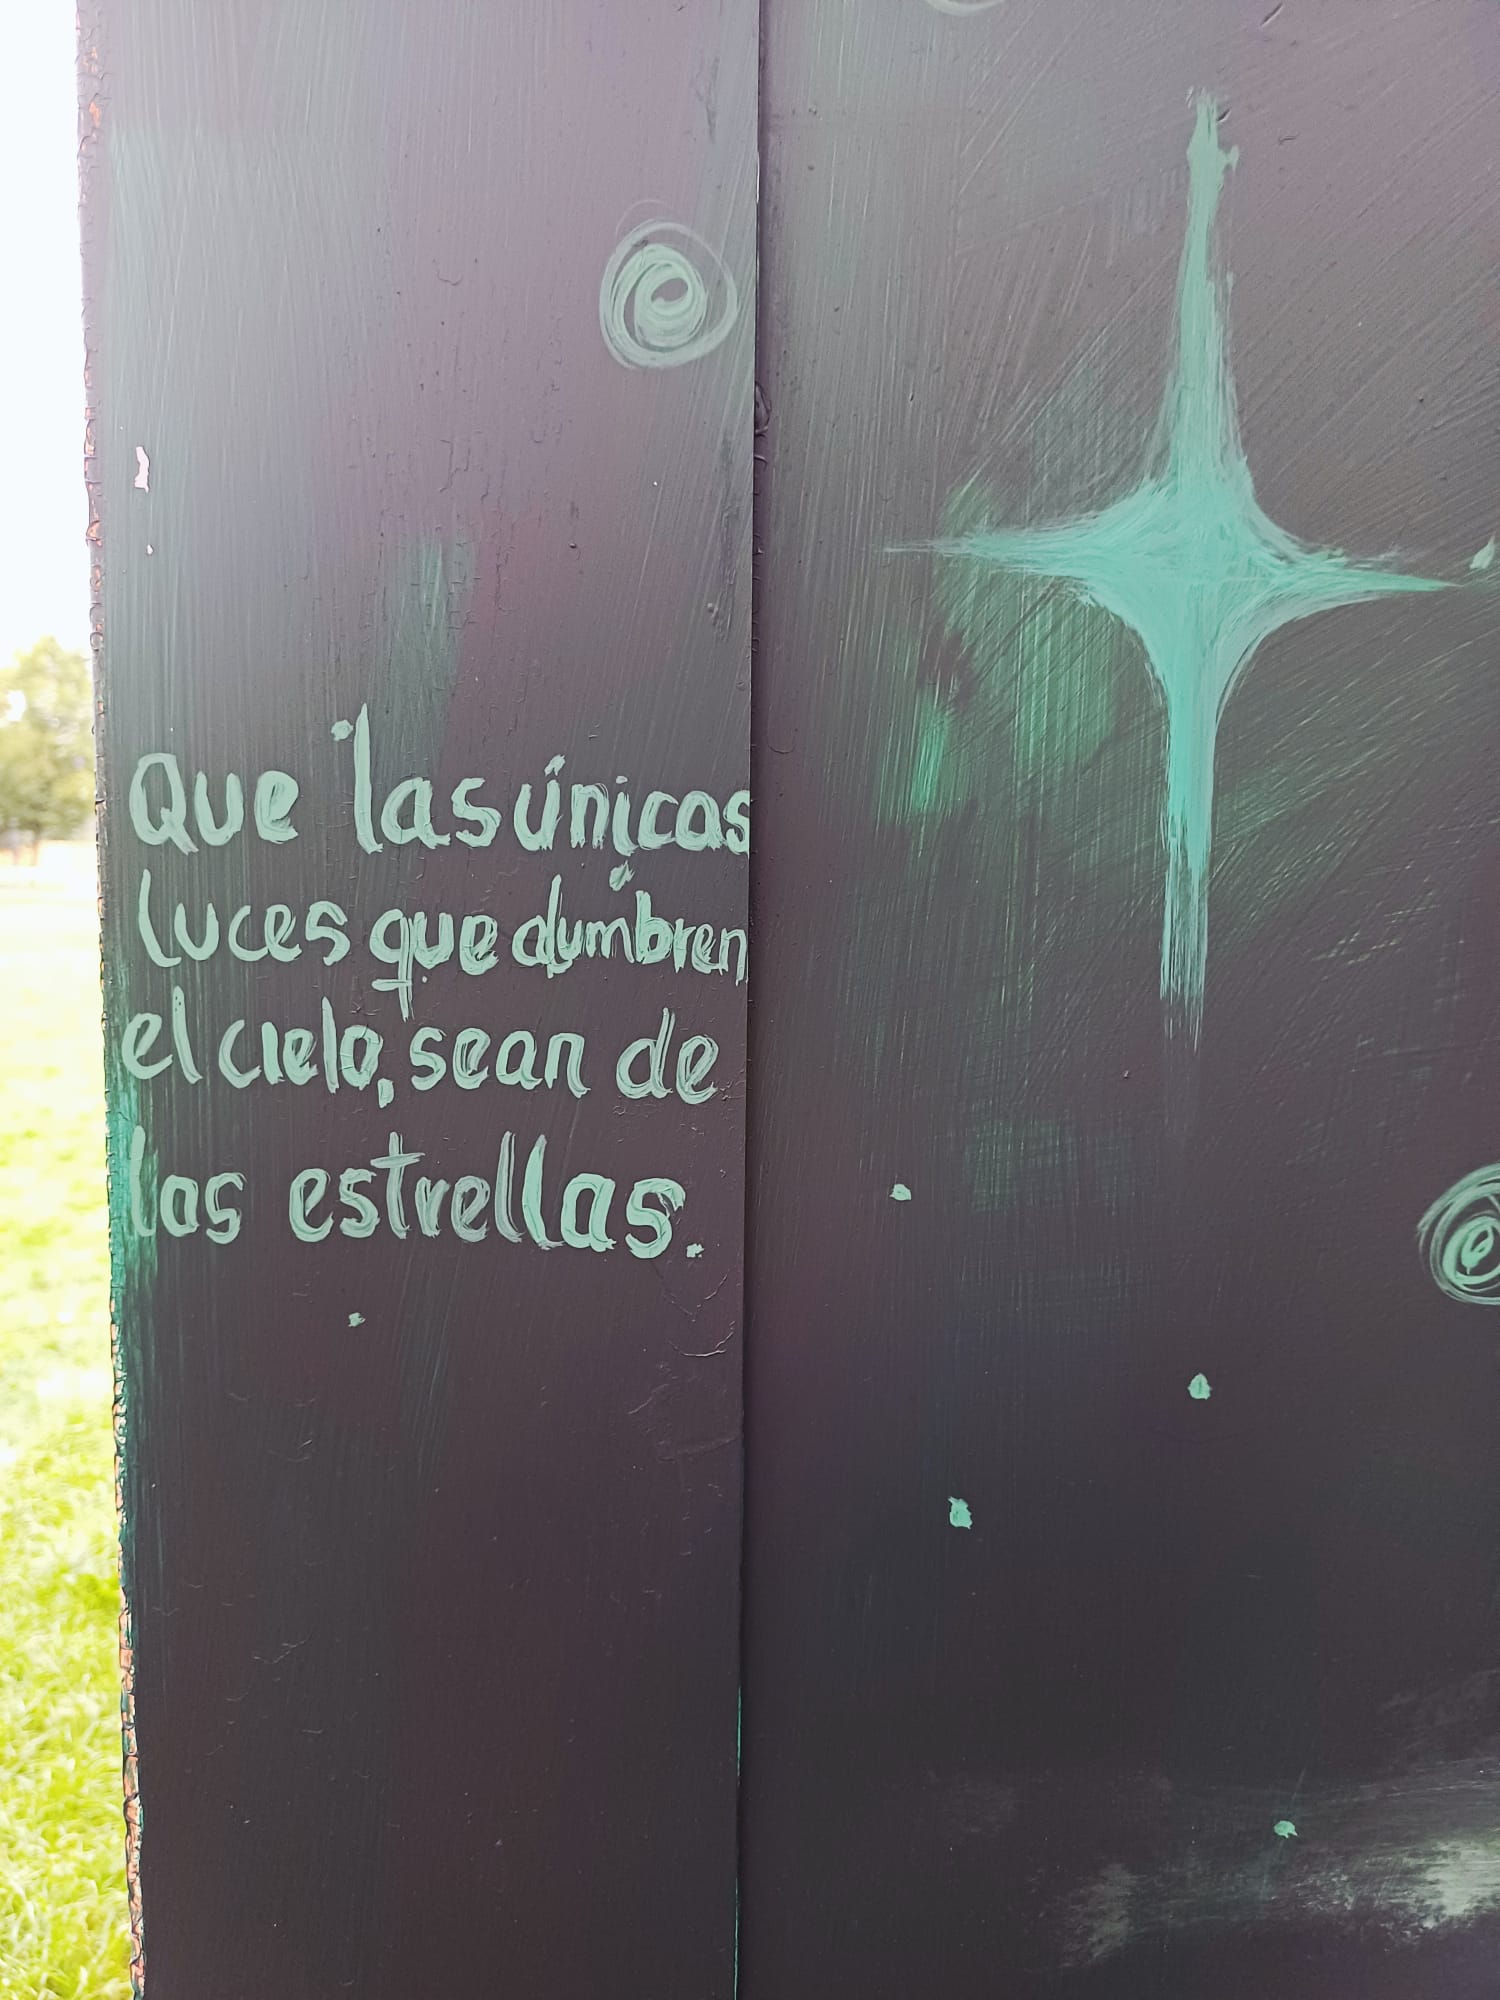 Que las únicas
luces que alumbren
el cielo, sean de
las estrellas.